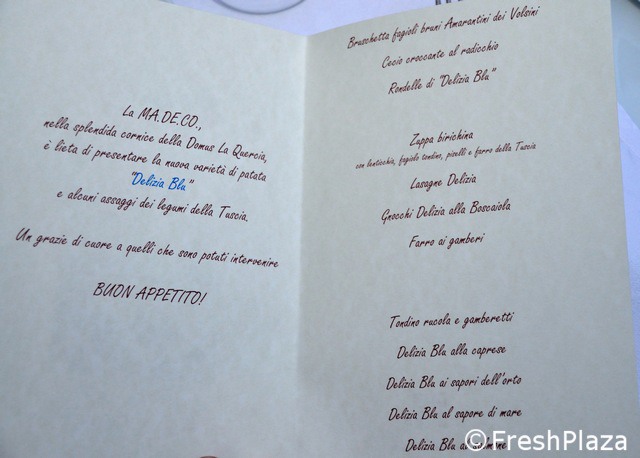 La MA.DE.CO.,
nella splendida cornice della Domus La Quercia,
è lieta di presentare la nuova varietà di patata
"Delizia Blu"
e alcuni assaggi dei legumi della Tuscia.
Un grazie di cuore a quelli che sono potuti intervenire
BUON APPETITO!
Bruschetta fagioli bruni Amarantini dei Volsini
Cecio croccante al radicchio
Rondelle di "Delizia Blu"
Zuppa birichina
con lenticchia, fagiolo tondino, piselli e farro della Tuscia
Lasagne Delizia
Gnocchi Delizia alla Boscaiola
Farro ai gamberi
Tondino rucola e gamberetti
Delizia Blu alla caprese
Delizia Blu ai sapori dell'orto
Delizia Blu al sapore di mare
Delizia Blu al salmone
©FreshPlaza